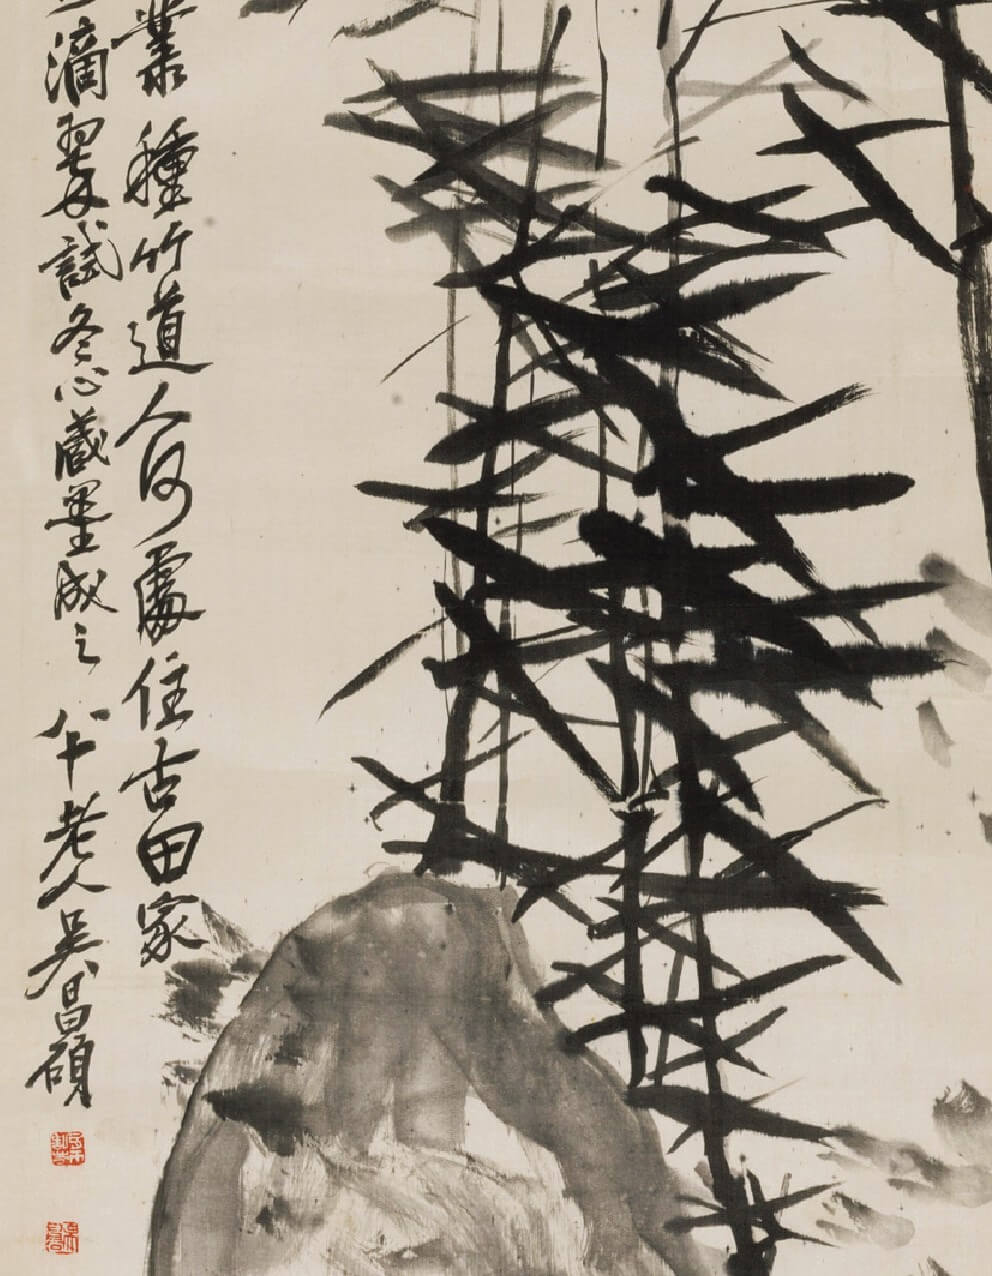 叢種竹道人何處住古田家
滴翠試冬心藏墨成之八十老人吳昌碩